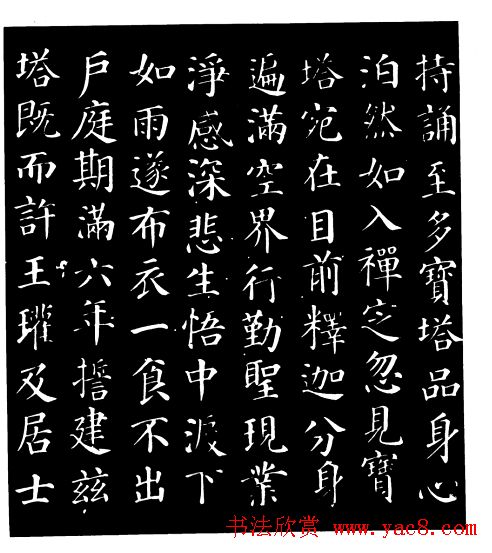 持誦至多寶塔品身心
泊然如入禪定忽見寶
塔宛在目前釋迦分身
遍滿空界行勤聖現業
淨感深悲生悟中淚下
如雨遂布衣一食不出
戶庭期滿六年誓建茲
塔既而許王瓘及居士
书法欣赏 www.yac8.com